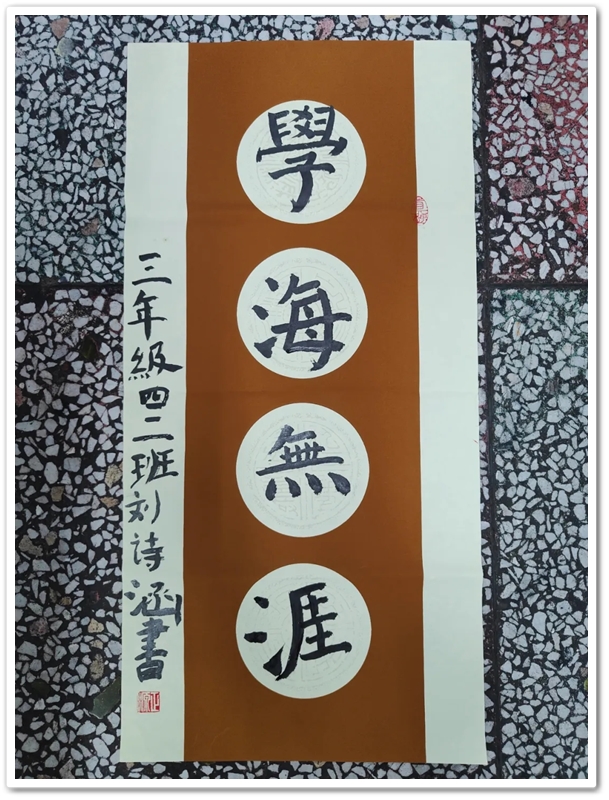 學海無涯
三年級四二班刘詩涵書